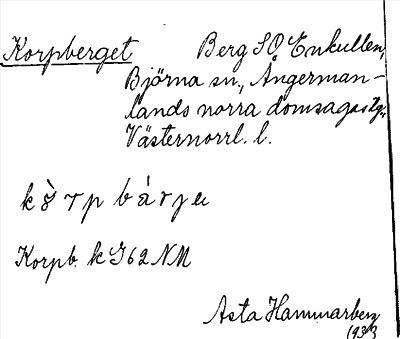 Korpberget Berg SO Enkullen,
Björna sn., Ångerman-
lands norra domsagas tg.
Västernorrl. l.
Korpb. k G62 NM
Asta Hammarberg
1933